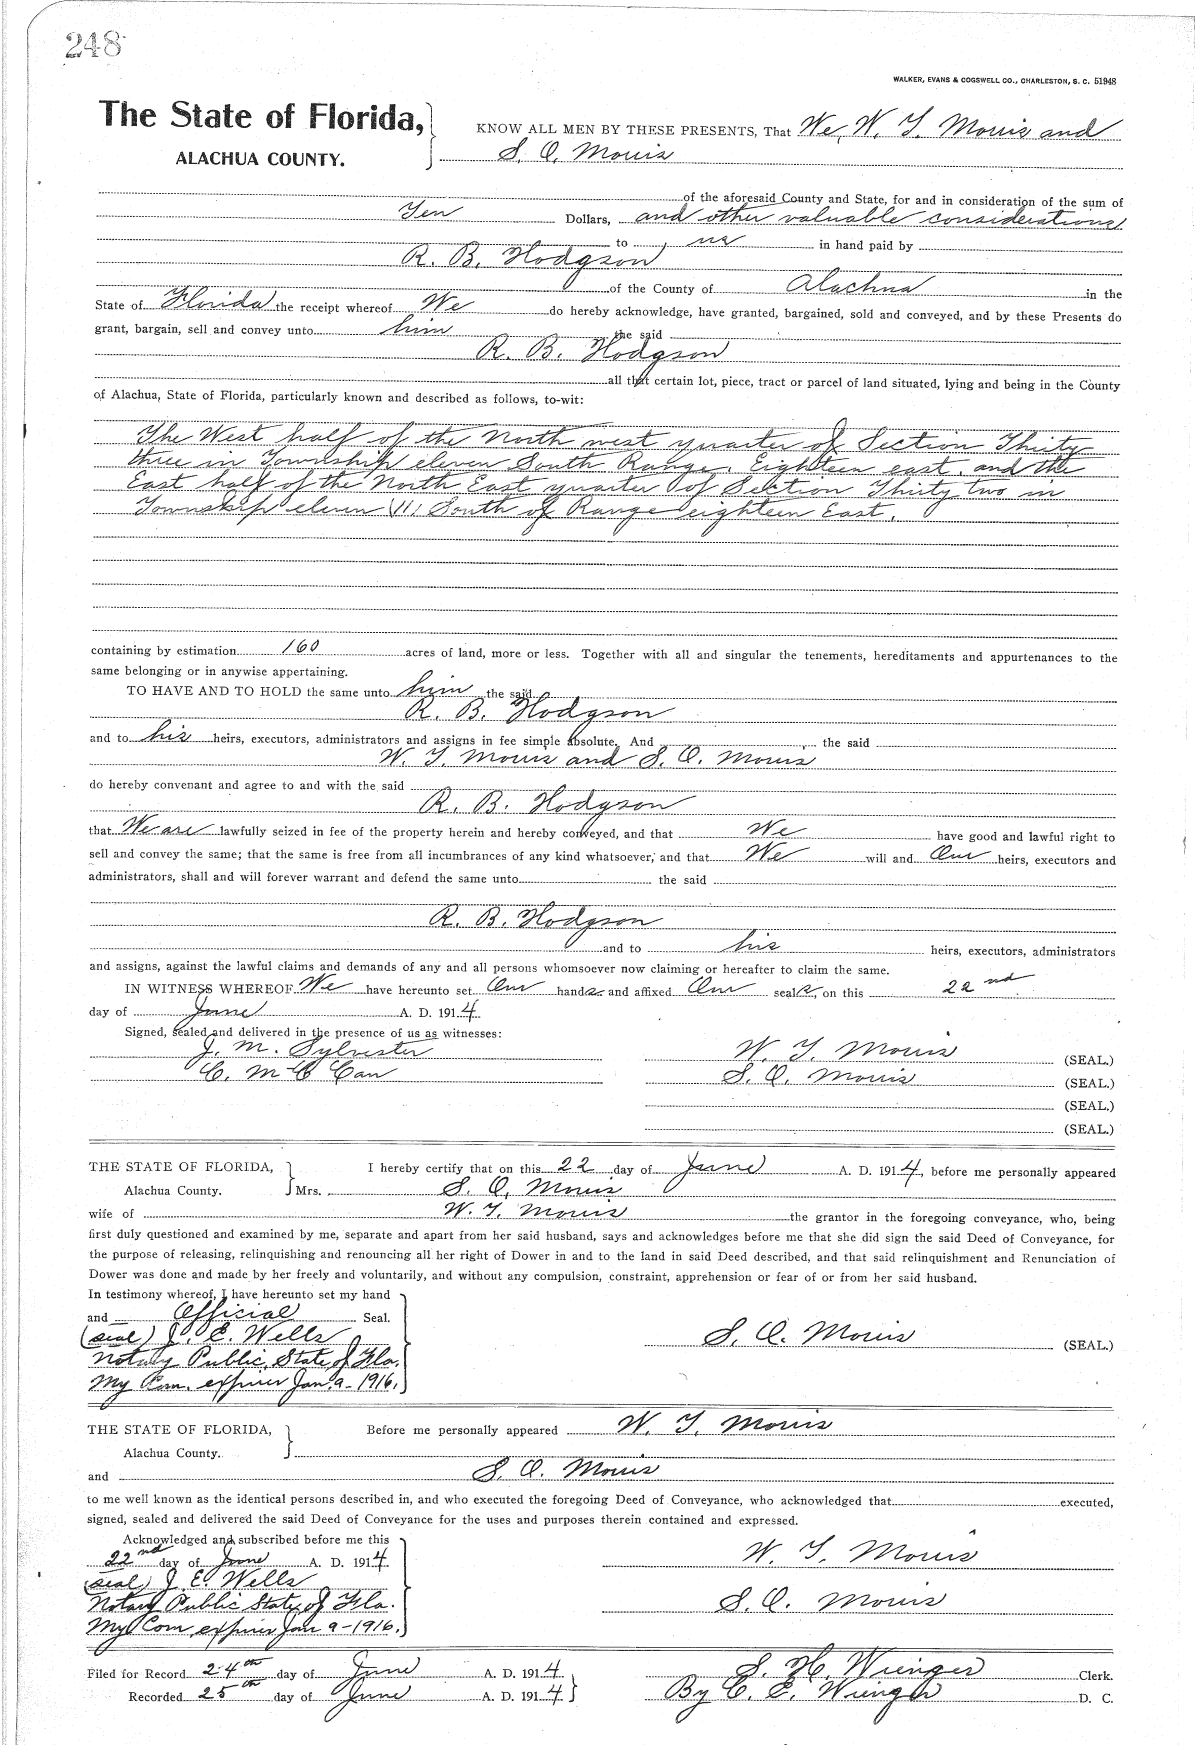 248
WALKER, EVANS & COGSWELL CO., CHARLESTON, S. C. 51948
The State of Florida,
ALACHUA COUNTY.
KNOW ALL MEN BY THESE PRESENTS, That We, W. T. Morris and
S. O. Morris
of the aforesaid County and State, for and in consideration of the sum of
Ten Dollars, and other valuable considerations
to us in hand paid by
R. B. Hodgson
of the County of Alachua in the
State of Florida the receipt whereof We do hereby acknowledge, have granted, bargained, sold and conveyed, and by these Presents do
grant, bargain, sell and convey unto him the said
R. B. Hodgson
all that certain lot, piece, tract or parcel of land situated, lying and being in the County
of Alachua, State of Florida, particularly known and described as follows, to-wit:
The West half of the North west quarter of Section Thirty
three in Township eleven South Range, Eighteen east, and the
East half of the North East quarter of Section Thirty two in
Township eleven (11) South of Range eighteen East.
containing by estimation 160 acres of land, more or less. Together with all and singular the tenements, hereditaments and appurtenances to the
same belonging or in anywise appertaining.
TO HAVE AND TO HOLD the same unto him the said
R. B. Hodgson
and to his heirs, executors, administrators and assigns in fee simple absolute. And the said
W. T. Morris and S. O. Morris
do hereby convenant and agree to and with the said
R. B. Hodgson
that We are lawfully seized in fee of the property herein and hereby conveyed, and that We have good and lawful right to
sell and convey the same; that the same is free from all incumbrances of any kind whatsoever, and that We will and Our heirs, executors and
administrators, shall and will forever warrant and defend the same unto the said
R. B. Hodgson
and to his heirs, executors, administrators
and assigns, against the lawful claims and demands of any and all persons whomsoever now claiming or hereafter to claim the same.
IN WITNESS WHEREOF We have hereunto set Our hands and affixed Our seals, on this 22nd
day of June A. D. 1914
Signed, sealed and delivered in the presence of us as witnesses:
J. M. Sylvester W. T. Morris (SEAL.)
C. McCan S. O. Morris (SEAL.)
(SEAL.)
(SEAL.)
THE STATE OF FLORIDA,
Alachua County.
I hereby certify that on this 22 day of June A. D. 1914, before me personally appeared
Mrs. S. O. Morris
wife of W. T. Morris the grantor in the foregoing conveyance, who, being
first duly questioned and examined by me, separate and apart from her said husband, says and acknowledges before me that she did sign the said Deed of Conveyance, for
the purpose of releasing, relinquishing and renouncing all her right of Dower in and to the land in said Deed described, and that said relinquishment and Renunciation of
Dower was done and made by her freely and voluntarily, and without any compulsion, constraint, apprehension or fear of or from her said husband.
In testimony whereof, I have hereunto set my hand
and Official Seal.
(seal) J. E. Wells
Notary Public, State of Fla.
My Com. expires Jan. 9-1916.
S. O. Morris (SEAL.)
THE STATE OF FLORIDA,
Alachua County.
Before me personally appeared W. T. Morris
and S. O. Morris
to me well known as the identical persons described in, and who executed the foregoing Deed of Conveyance, who acknowledged that executed,
signed, sealed and delivered the said Deed of Conveyance for the uses and purposes therein contained and expressed.
Acknowledged and subscribed before me this
22nd day of June A. D. 1914
(seal) J. E. Wells
Notary Public State of Fla.
My Com expires Jan 9-1916.
W. T. Morris
S. O. Morris
Filed for Record 24th day of June A. D. 1914
Recorded 25th day of June A. D. 1914
S. H. Wienges Clerk.
By C. E. Wienges D. C.